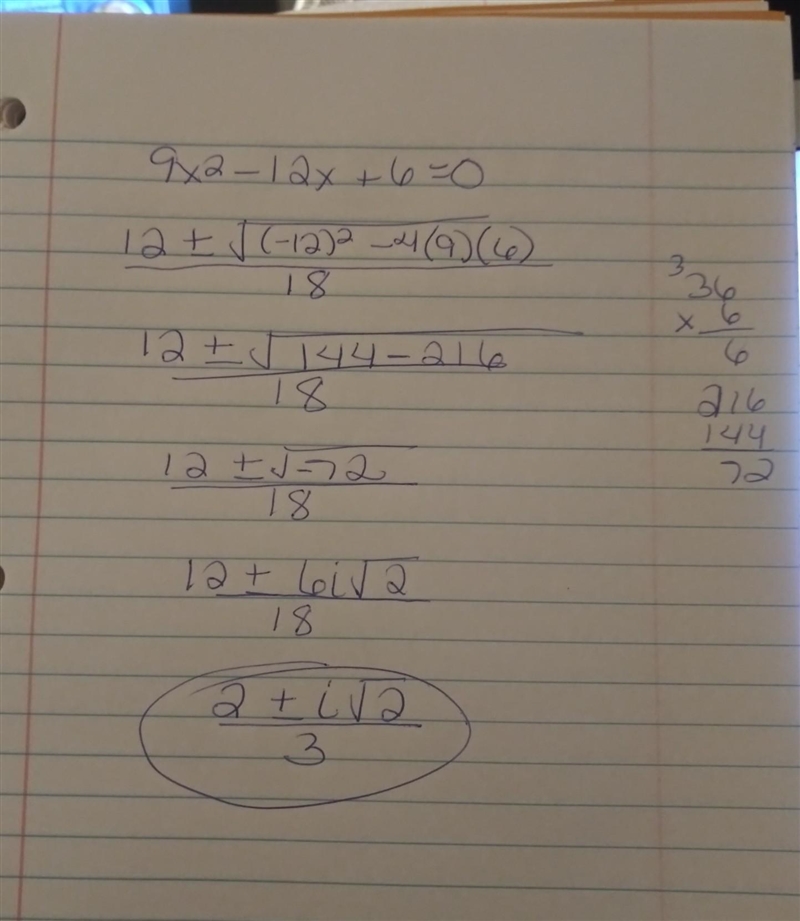 9x2 - 12x + 6 = 0
12 ± √(-12)² - 4(9)(6)
18
12 ± √144 - 216
18
12 ± √-72
18
12 ± 6i√2
18
2 ± i√2
3
3
36
x 6
6
216
144
72